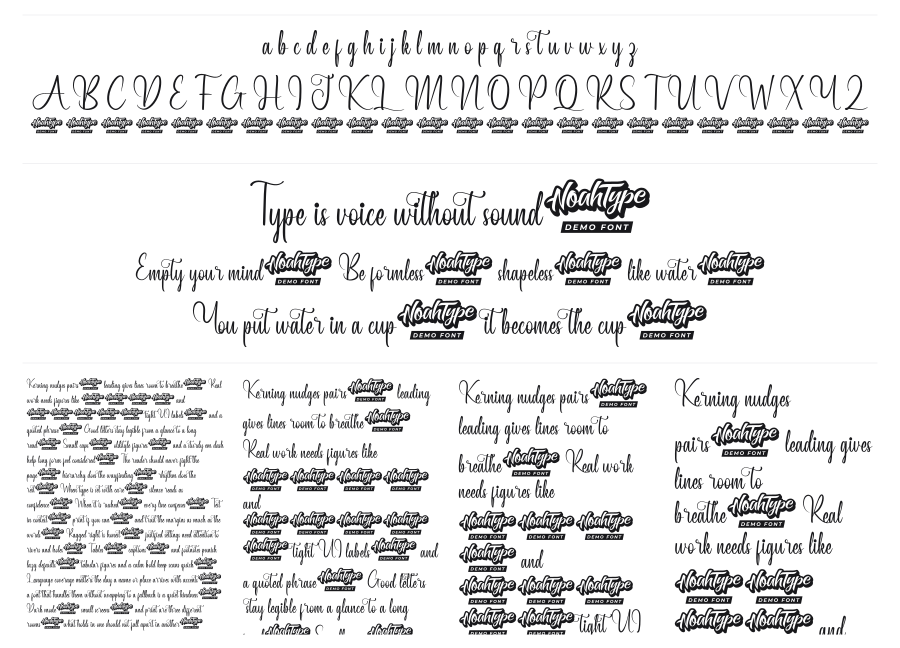 a b c d e f g h i j k l m n o p q r s t u v w x y z
A B C D E F G H I J K L M N O P Q R S T U V W X Y Z
Type is voice without sound NoahType DEMO FONT
Empty your mind NoahType DEMO FONT Be formless NoahType DEMO FONT shapeless NoahType DEMO FONT like water NoahType DEMO FONT
You put water in a cup NoahType DEMO FONT it becomes the cup NoahType DEMO FONT
Kerning nudges pairs NoahType leading gives lines room to breathe NoahType Real
work needs figures like NoahType NoahType NoahType NoahType and
NoahType NoahType NoahType NoahType NoahType tight UI labels NoahType and a
quoted phrase NoahType Good letters stay legible from a glance to a long
read NoahType Small caps NoahType oldstyle figures NoahType and a sturdy em dash
help long form feel considered NoahType The reader should never fight the
page NoahType hierarchy does the wayfinding NoahType rhythm does the
rest NoahType When type is set with care NoahType silence reads as
confidence NoahType When it is rushed NoahType every line confesses NoahType Test
in context NoahType print if you can NoahType and trust the margins as much as the
words NoahType Ragged right is honest NoahType justified setting needs attention to
rivers and holes NoahType Tables NoahType captions NoahType and footnotes punish
lazy defaults NoahType tabular figures and a calm bold keep scans quick NoahType
Language coverage matters the day a name or place arrives with accents NoahType
a font that handles them without swapping to a fallback is a quiet kindness NoahType
Dark mode NoahType small screens NoahType and print are three different
rooms NoahType what holds in one should not fall apart in another NoahType
Kerning nudges pairs NoahType DEMO FONT leading
gives lines room to breathe NoahType DEMO FONT
Real work needs figures like
NoahType DEMO FONT NoahType DEMO FONT NoahType DEMO FONT NoahType DEMO FONT
and
NoahType DEMO FONT NoahType DEMO FONT NoahType DEMO FONT NoahType DEMO FONT
NoahType DEMO FONT tight UI labels NoahType DEMO FONT and
a quoted phrase NoahType DEMO FONT Good letters
stay legible from a glance to a long
Kerning nudges pairs NoahType DEMO FONT
leading gives lines room to
breathe NoahType DEMO FONT Real work
needs figures like
NoahType DEMO FONT NoahType DEMO FONT NoahType DEMO FONT
NoahType DEMO FONT and
NoahType DEMO FONT NoahType DEMO FONT NoahType DEMO FONT
NoahType DEMO FONT NoahType DEMO FONT tight UI
Kerning nudges
pairs NoahType DEMO FONT leading gives
lines room to
breathe NoahType DEMO FONT Real
work needs figures like
NoahType DEMO FONT NoahType DEMO FONT
NoahType NoahType and